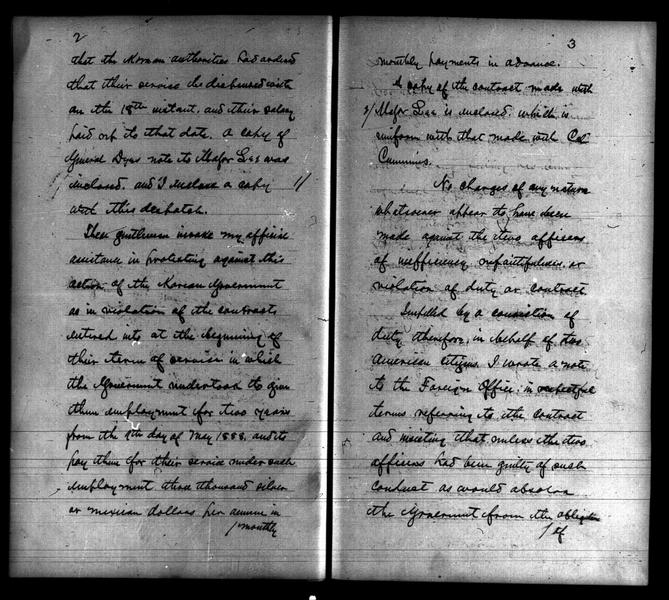 2
that the Korean authorities had ordered
that their service be dispensed with
on the 18th instant, and their salary
paid out to that date. A copy of
General Dyes note to Major Lee was
inclosed, and I inclose a copy 1/
with this despatch.
These gentlemen invoke my official
assistance in protesting against this
action of the Korean Government
as in violation of the contracts
entered into at the beginning of
their term of service in which
the Government undertook to give
them employment for two years
from the 8th day of May 1888, and to
pay them for their service under such
employment three thousand silver
or mexican dollars per annum in
/monthly
3
monthly payments in advance.
A copy of the contract made with
2/ Major Lee is inclosed, which is
uniform with that made with Col
Cummins.
No charges of any nature
whatsoever appear to have been
made against the two officers
of inefficiency, unfaithfulness, or
violation of duty or contract
Impelled by a conviction of
duty therefore, in behalf of two
American Citizens I wrote a note
to the Foreign Office, in respectful
terms referring to the contract
and insisting that unless the two
officers had been guilty of such
conduct as would absolve
the Government from the obligation
/of